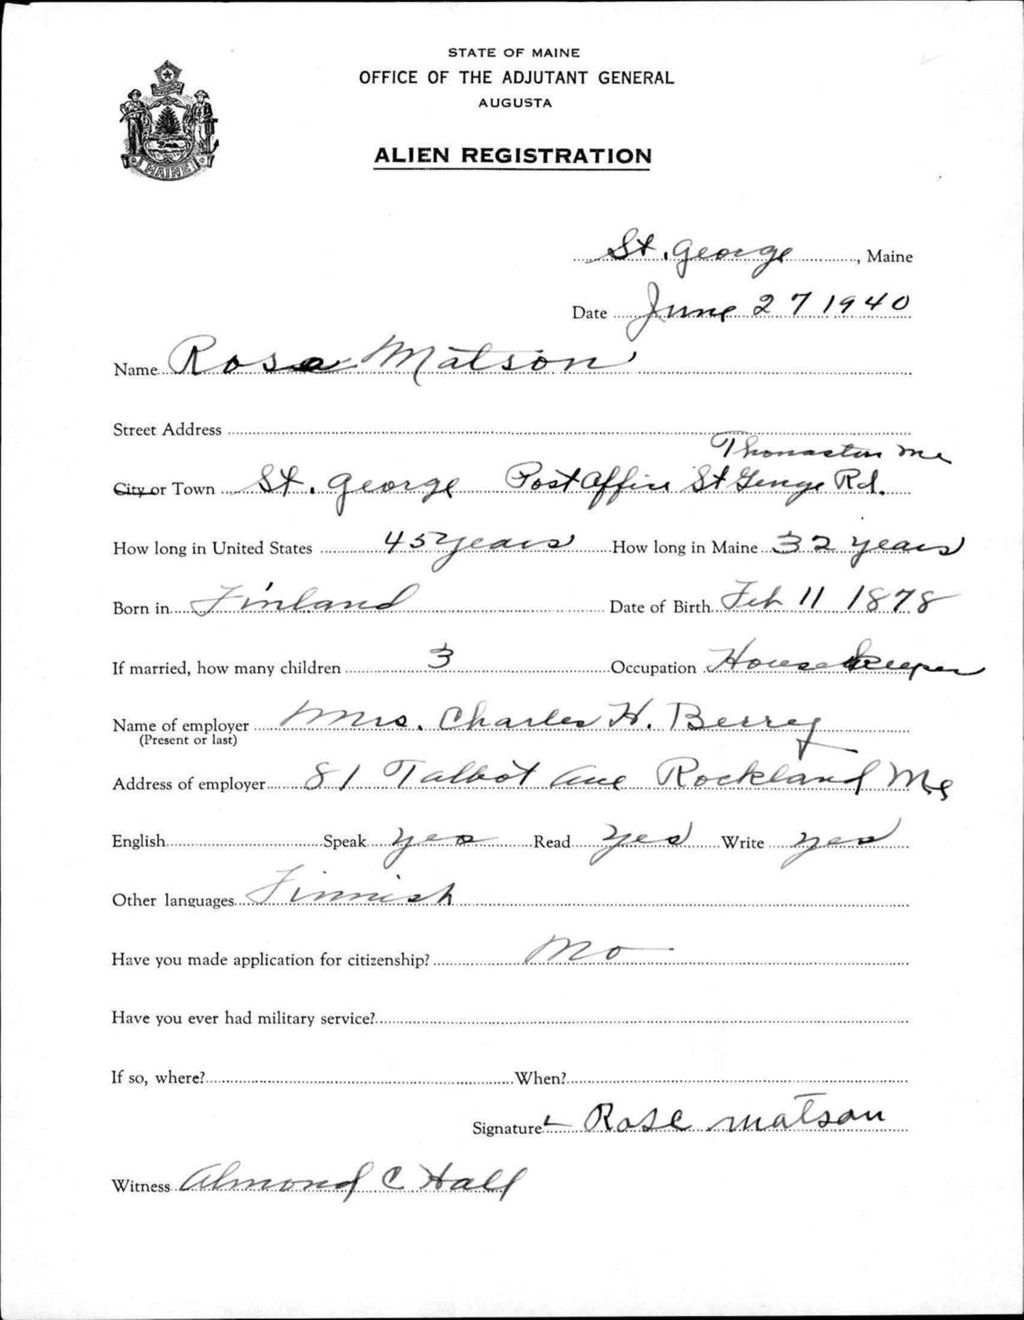 STATE OF MAINE
OFFICE OF THE ADJUTANT GENERAL
AUGUSTA
ALIEN REGISTRATION
MAINE
St. George, Maine
Date June 27 1940
Name Rosa Matson
Street Address
Thomaston Me
City or Town St. George Post Office St George Rd.
How long in United States 45 years How long in Maine 32 years
Born in Finland Date of Birth Feb 11 1878
If married, how many children 3 Occupation House Keeper
Name of employer Mrs. Charles H. Berry
(Present or last)
Address of employer 81 Talbot Ave Rockland Me
English Speak yes Read Yes Write yes
Other languages Finnish
Have you made application for citizenship? No
Have you ever had military service?
If so, where? When?
Signature Rose Matson
Witness Almond C Hall